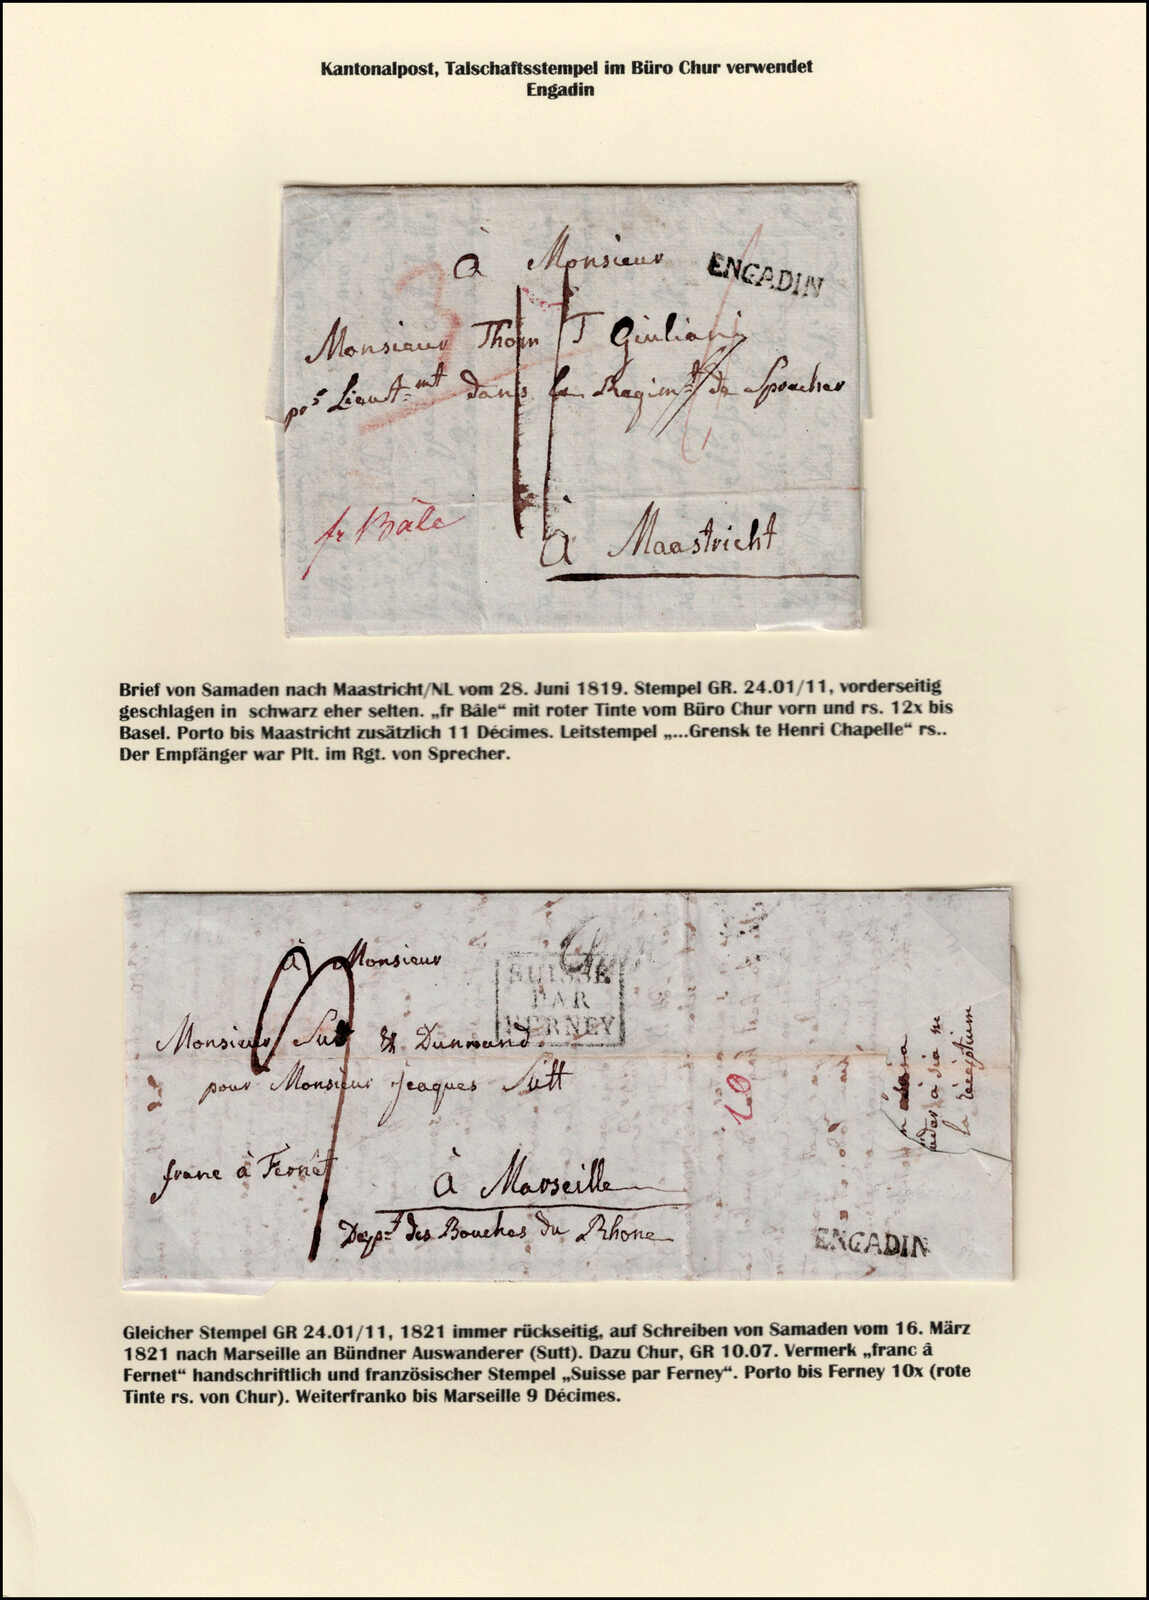 Kantonalpost, Talschaftsstempel im Büro Chur verwendet
Engadin
à Monsieur
ENGADIN
3
11
Monsieur Thom T Giuliani
pr Lieut.mt dans le Regimt de Sprecher
fr Bâle
à Maastricht
Brief von Samaden nach Maastricht/NL vom 28. Juni 1819. Stempel GR. 24.01/11, vorderseitig
geschlagen in schwarz eher selten. „fr Bâle“ mit roter Tinte vom Büro Chur vorn und rs. 12x bis
Basel. Porto bis Maastricht zusätzlich 11 Décimes. Leitstempel „...Grensk te Henri Chapelle“ rs..
Der Empfänger war Plt. im Rgt. von Sprecher.
à Monsieur
Chur
SUISSE
PAR
FERNEY
9
Monsieur Sutt & Dunmand
pour Monsieur Jeaques Sutt
franc à Fernèt
à Marseille
Dept des Bouches du Rhone
10
la réception
ENGADIN
Gleicher Stempel GR 24.01/11, 1821 immer rückseitig, auf Schreiben von Samaden vom 16. März
1821 nach Marseille an Bündner Auswanderer (Sutt). Dazu Chur, GR 10.07. Vermerk „franc â
Fernet“ handschriftlich und französischer Stempel „Suisse par Ferney“. Porto bis Ferney 10x (rote
Tinte rs. von Chur). Weiterfranko bis Marseille 9 Décimes.